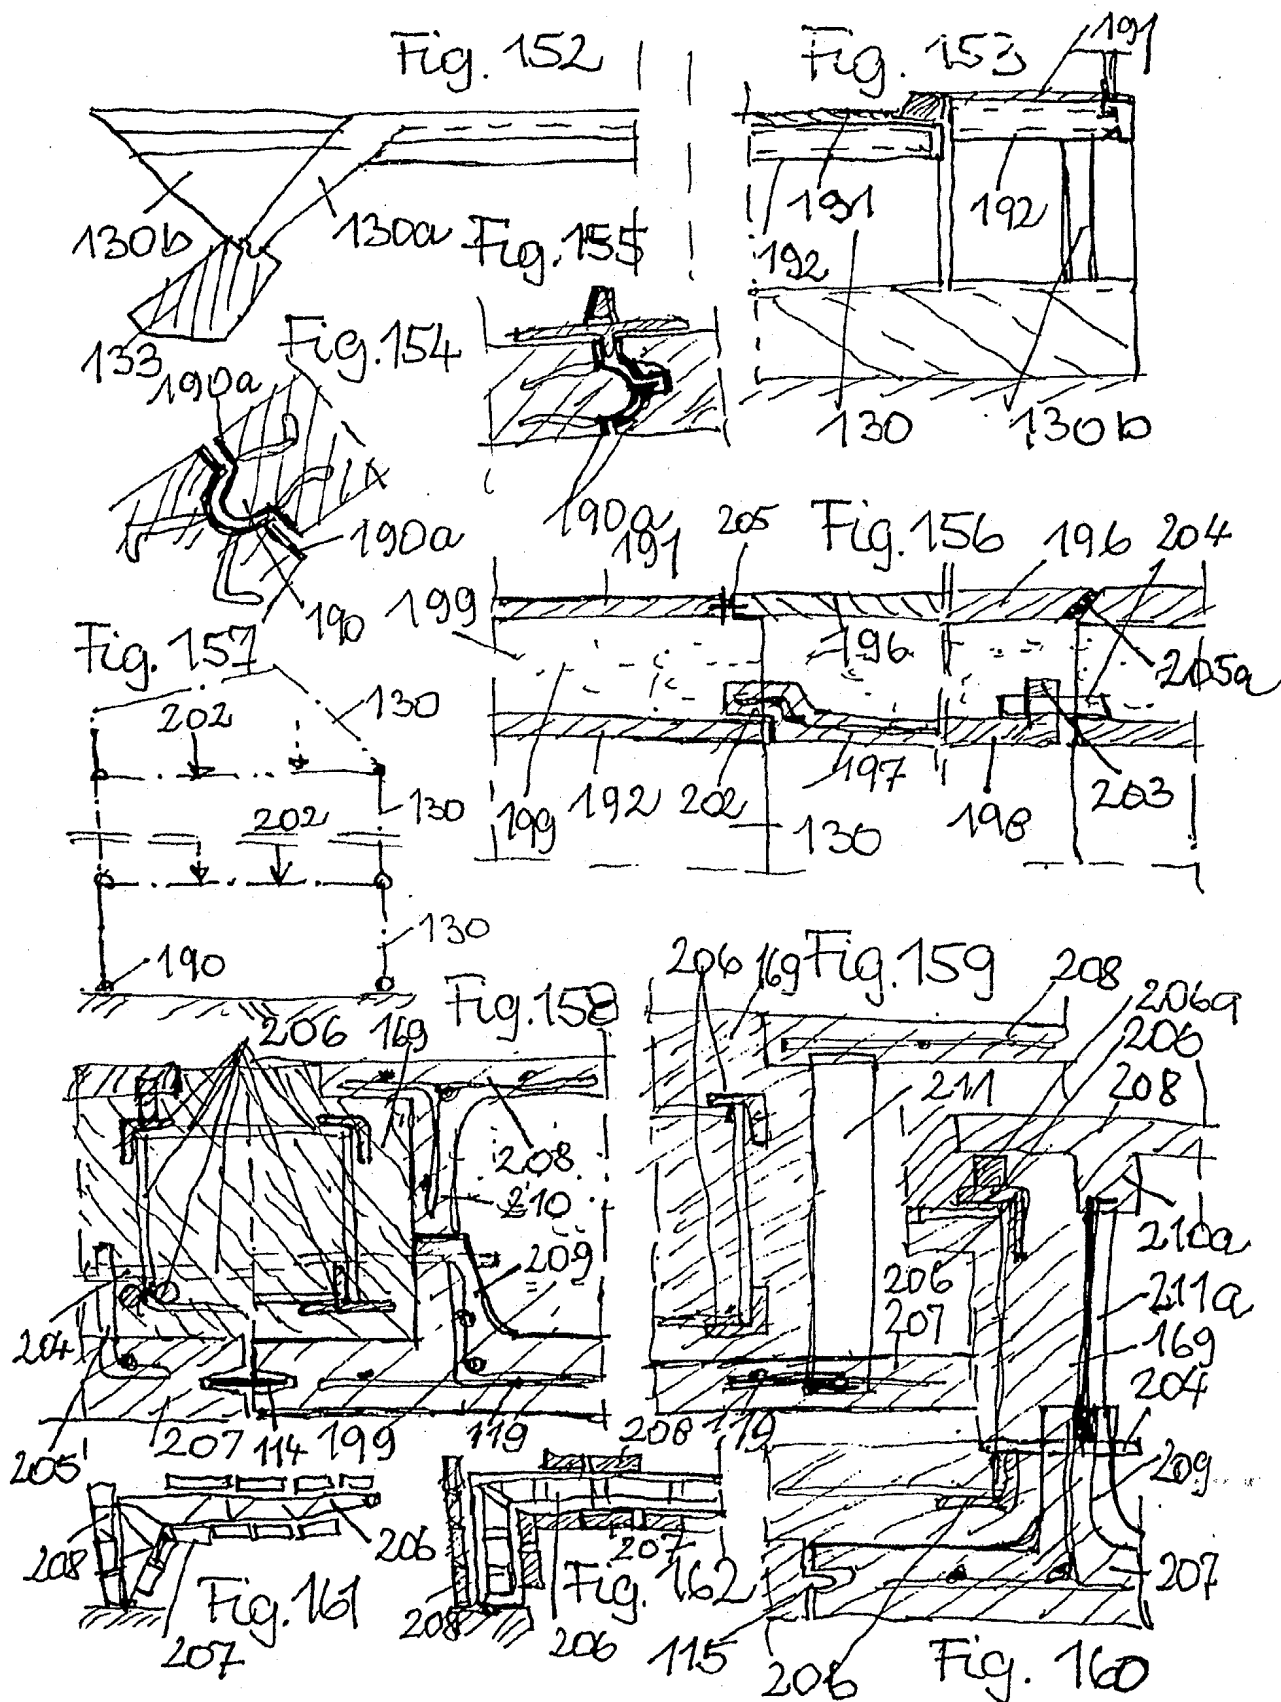 Fig. 152
Fig. 153
191
130b
130a
Fig. 155
191
192
192
133
190a
Fig. 154
130
130b
190a
190a
190
191
205
Fig. 156
196
204
199
Fig. 157
196
205a
202
130
199
192
202
197
198
203
130
202
130
190
130
206
169
Fig. 158
206
169
Fig. 159
208
206a
206
208
211
208
210
209
210a
206
207
211a
169
204
204
205'
207
114
199
119
208
119
209
208
206
207
207
Fig. 161
207
208
Fig. 162
206
115
206
Fig. 160